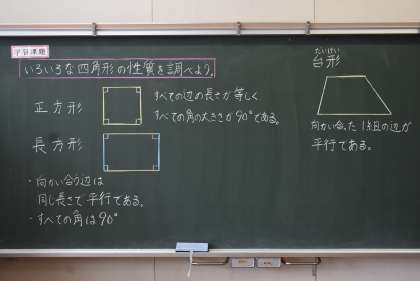 学習課題
いろいろな四角形の性質を調べよう。
正方形
すべての辺の長さが等しく
すべての角の大きさが90°である。
長方形
・向かい合う辺は
同じ長さで平行である。
・すべての角は90°
だいけい
台形
向かい合った1組の辺が
平行である。